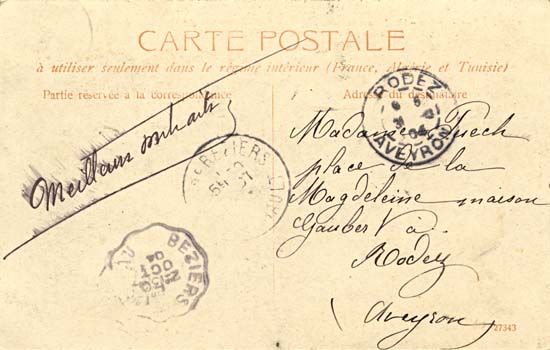 CARTE POSTALE
à utiliser seulement dans le régime intérieur (France, Algérie et Tunisie)
Partie réservée a la correspondance
Adresse du destinataire
Meilleurs souhaits
Madame Puech
place de la
Magdeleine maison
Gaubert à
Rodez
Aveyron
RODEZ
AVEYRON
BEZIERS
BEZIERS
OCT
04
27343